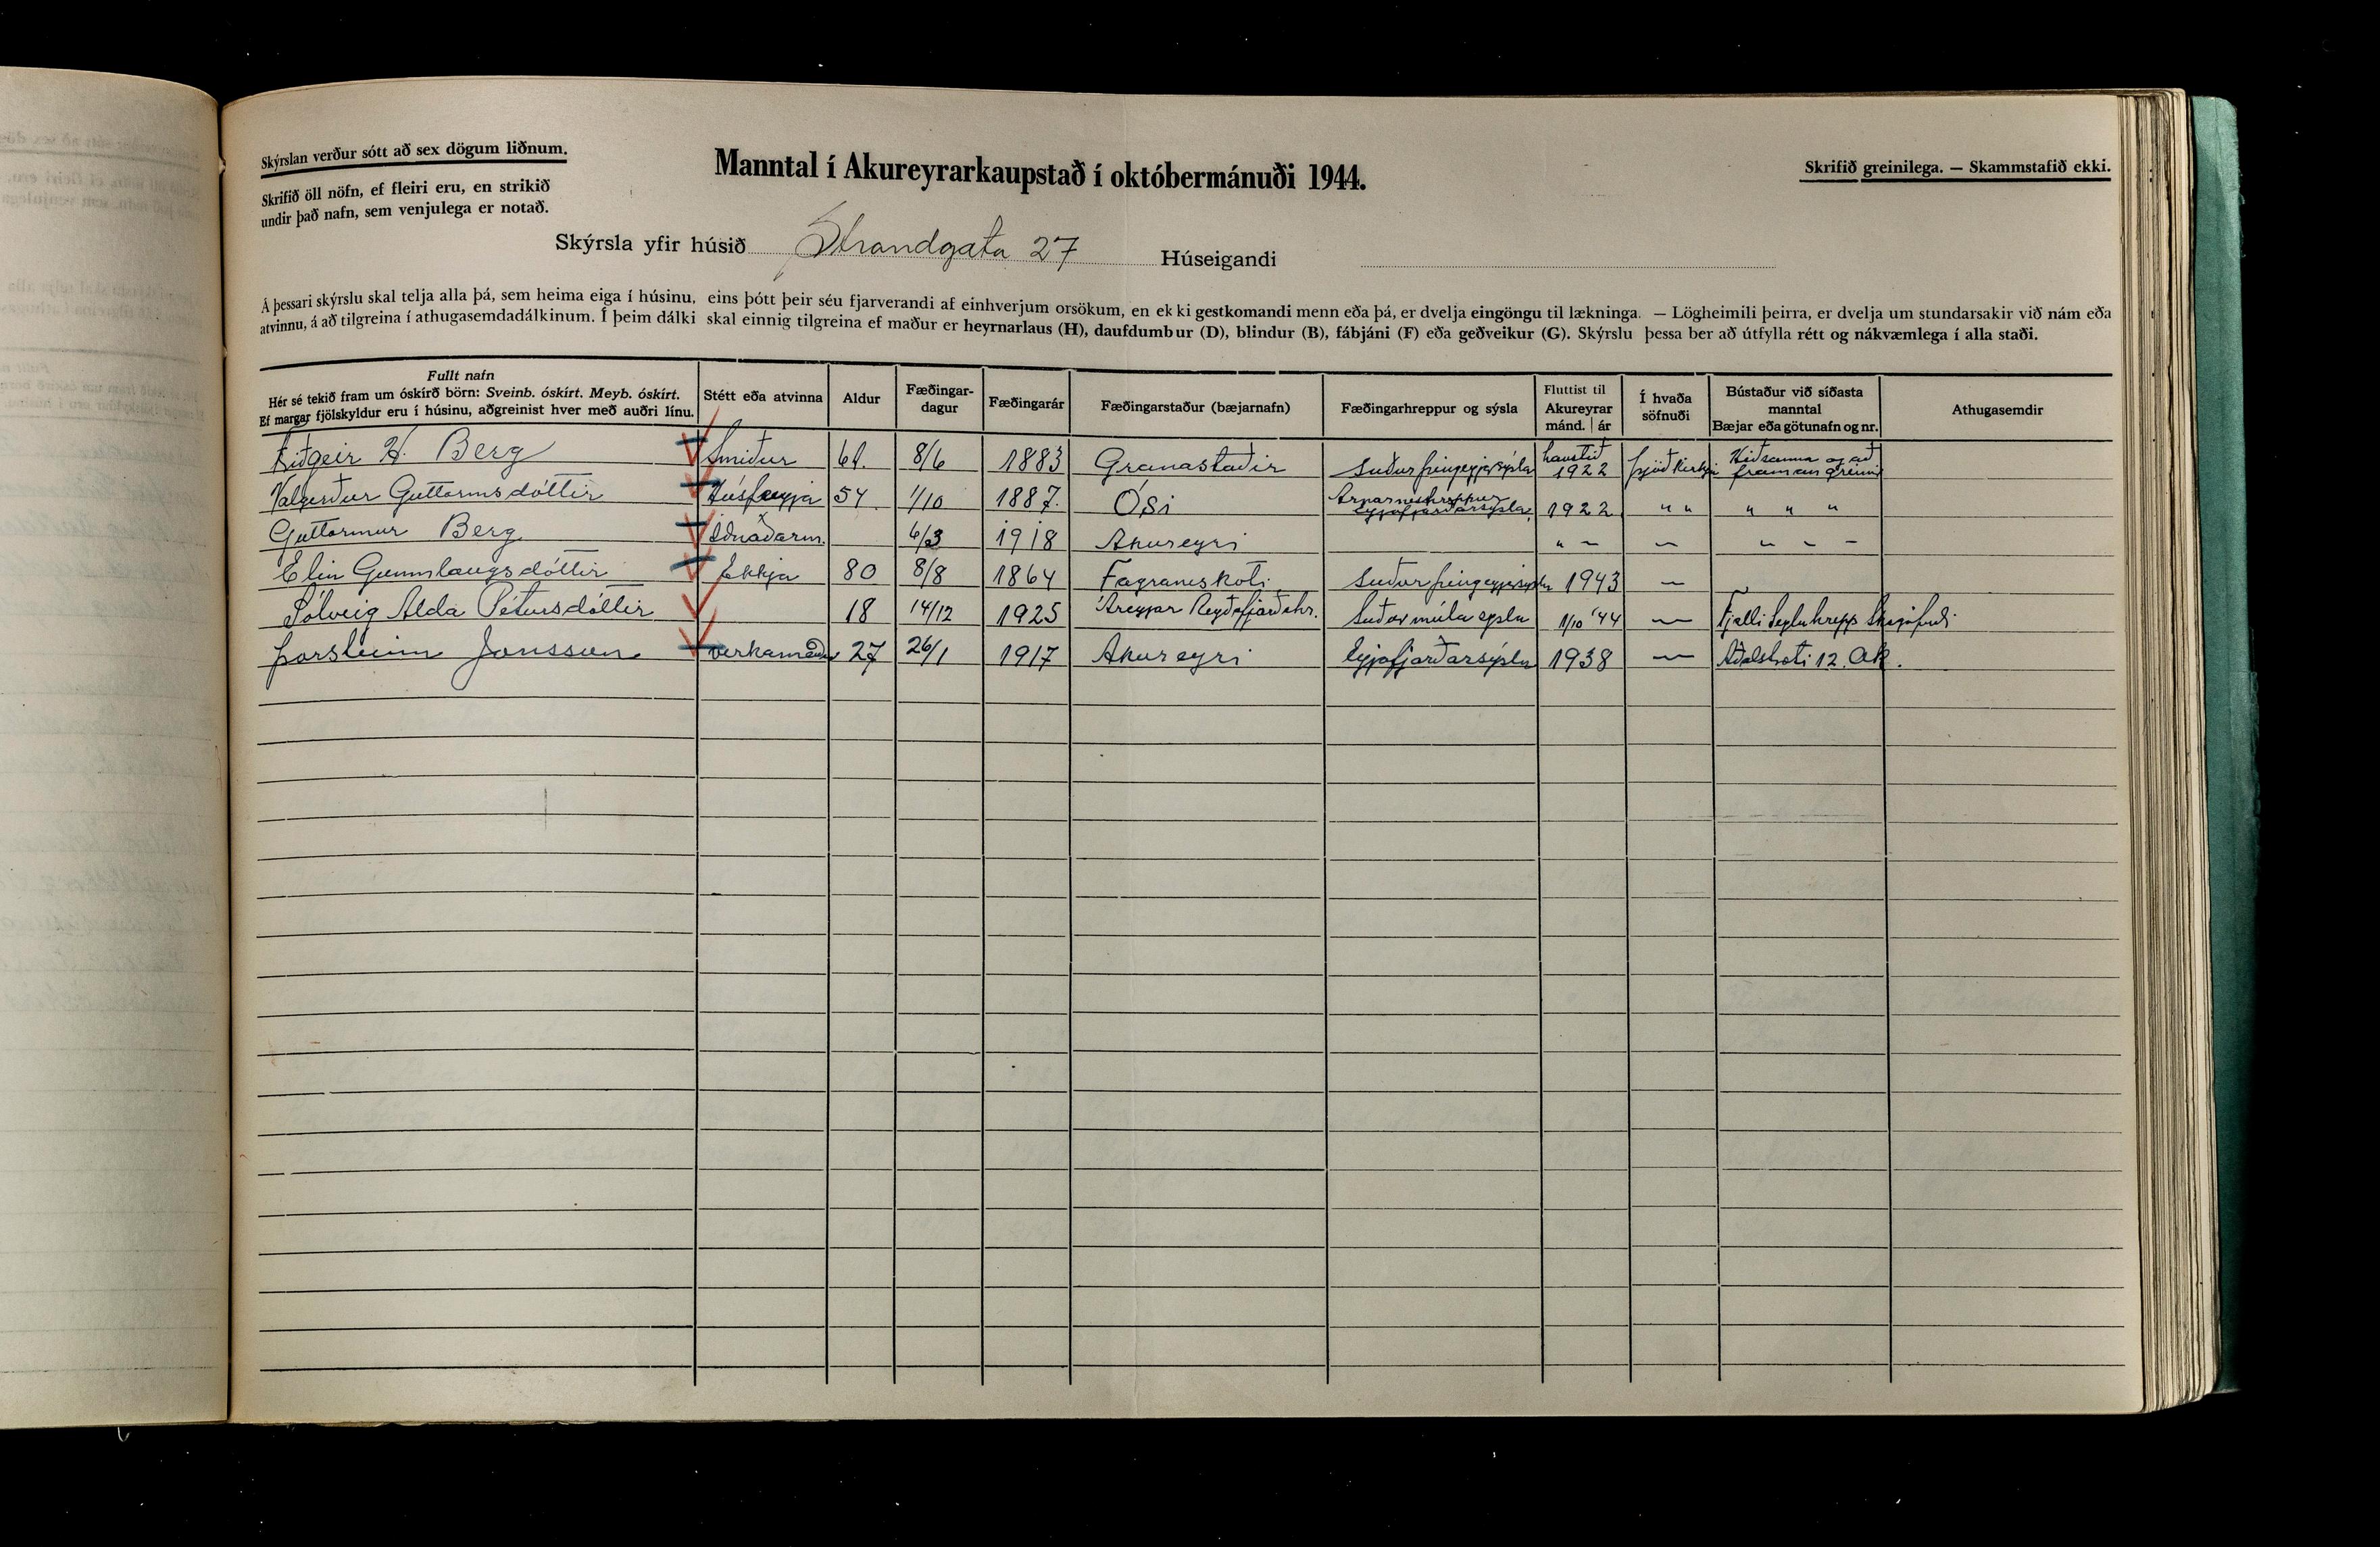 Skýrslan verður sótt að sex dögum liðnum.
Skrifið öll nöfn, ef fleiri eru, en strikið
undir það nafn, sem venjulega er notað.
Manntal í Akureyrarkaupstað í októbermánuði 1944.
Skrifið greinilega. — Skammstafið ekki.
Skýrsla yfir húsið Strandgata 27 Húseigandi
Á þessari skýrslu skal telja alla þá, sem heima eiga í húsinu, eins þótt þeir séu fjarverandi af einhverjum orsökum, en ekki gestkomandi menn eða þá, er dvelja eingöngu til lækninga. — Lögheimili þeirra, er dvelja um stundarsakir við nám eða
atvinnu, á að tilgreina í athugasemdadálkinum. Í þeim dálki skal einnig tilgreina ef maður er heyrnarlaus (H), daufdumbur (D), blindur (B), fábjáni (F) eða geðveikur (G). Skýrslu þessa ber að útfylla rétt og nákvæmlega í alla staði.
Fullt nafn
Hér sé tekið fram um óskírð börn: Sveinb. óskírt. Meyb. óskírt.
Ef margar fjölskyldur eru í húsinu, aðgreinist hver með auðri línu.
Stétt eða atvinna
Aldur
Fæðingar-
dagur
Fæðingarár
Fæðingarstaður (bæjarnafn)
Fæðingarhreppur og sýsla
Fluttist til
Akureyrar
mánd. | ár
Í hvaða
söfnuði
Bústaður við síðasta
manntal
Bæjar eða götunafn og nr.
Athugasemdir
Friðgeir H. Berg Smiður 61. 8/6 1883 Granastaðir Suður þingeyjarsýsla haustið 1922 þjóð kirkju Hið sama og að framan greinir
Valgerður Guttormsdóttir Húsfreyja 57 1/10 1887. Ósi Arnarneshreppur Eyjafjarðarsýsla 1922 " " " " "
Guttormur Berg Iðnaðarm. 6/3 1918 Akureyri " — — " - -
Elín Gunnlaugsdóttir Ekkja 80 8/8 1864 Fagraneskoti Suður þingeyjarsýslu 1943 —
Sólveig Alda Pétursdóttir 18 14/12 1925 Áreyjar Reyðafjarðahr. Suður múla sýslu 1/10 '44 — Fjalli Seyluhrepp Skagafirði
Þorsteinn Jónsson verkamaður 27 26/1 1917 Akureyri Eyjafjarðarsýslu 1938 — Aðalstræti 12. Ak.